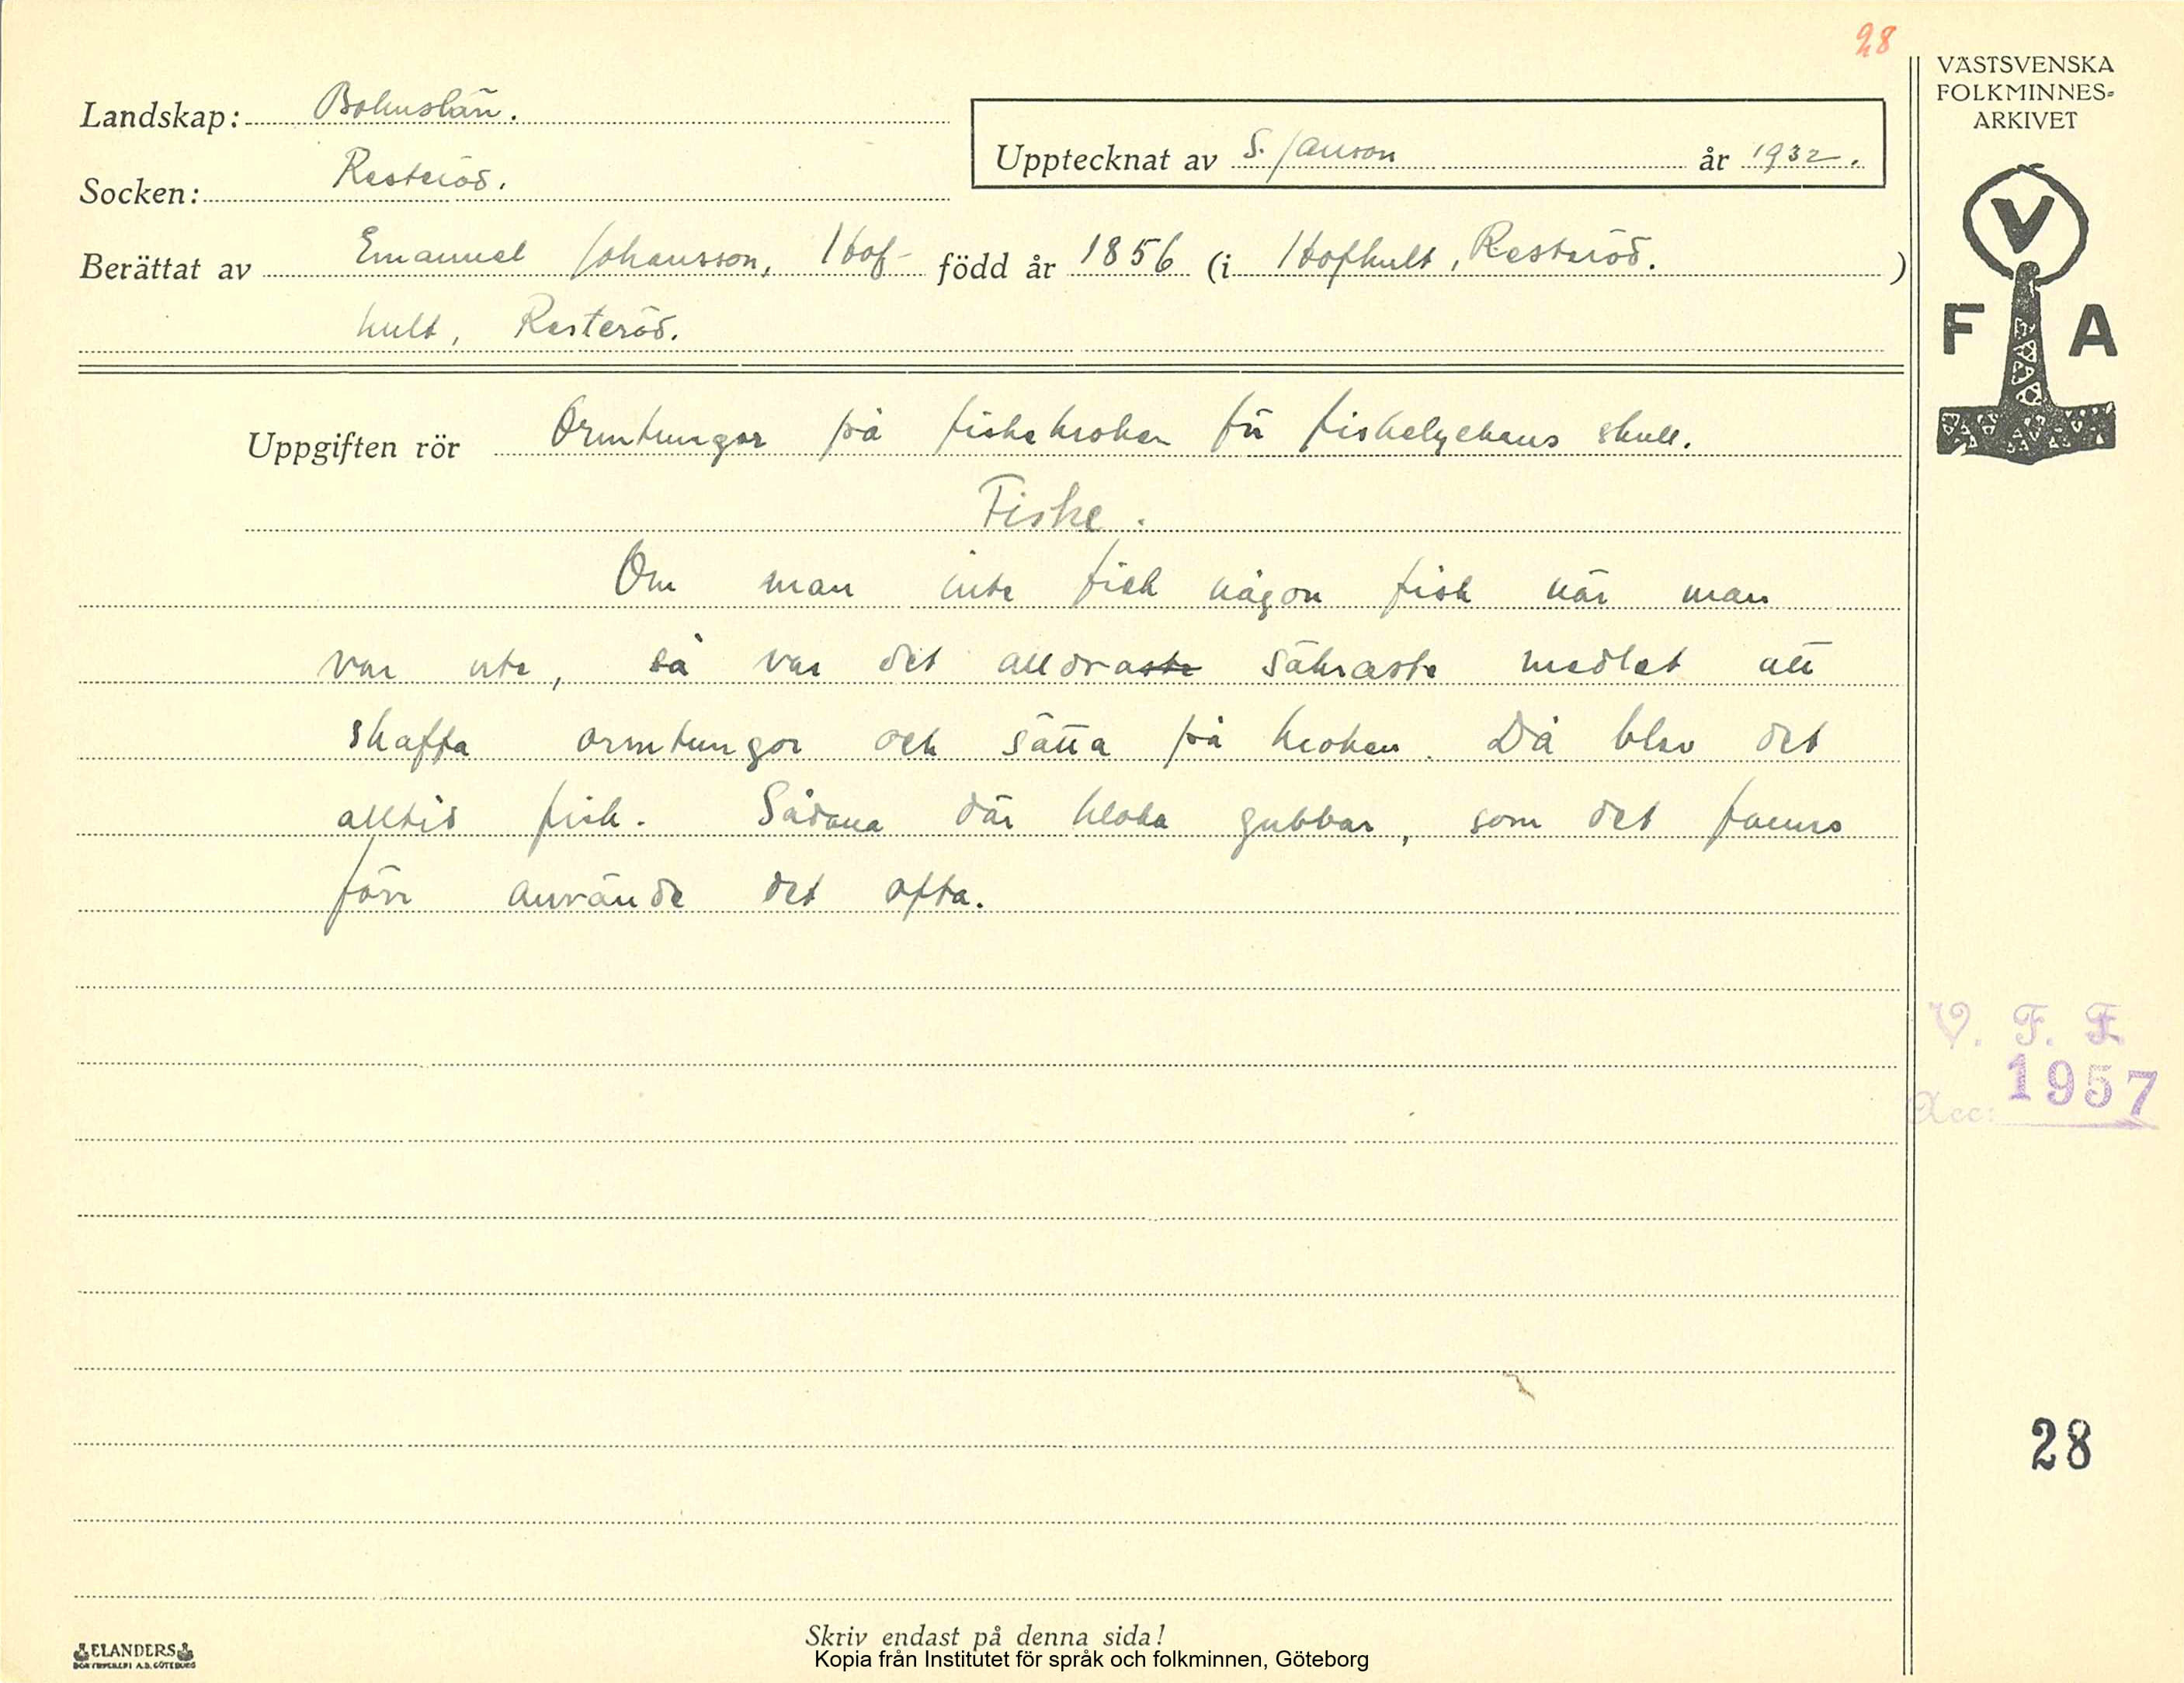 28
VÄSTSVENSKA
FOLKMINNES-
ARKIVET
Landskap: Bohuslän.
Upptecknat av S. Janson år 1932.
Socken: Resteröd.
Berättat av Emanuel Johansson, Hof- född år 1856 (i Hofhult, Resteröd. )
hult, Resteröd.
V
F A
Uppgiften rör Ormtungor på fiskekroken för fiskelyckans skull.
Fiske.
Om man inte fick någon fisk när man
var ute, så var det alldraste säkraste medlet att
skaffa ormtungor och sätta på kroken. Då blev det
alltid fisk. Sådana där kloka gubbar, som det fanns
förr använde det ofta.
V. F. F.
Acc: 1957
28
Skriv endast på denna sida!
ELANDERS
BOKTRYCKERI A.B. GÖTEBORG
Kopia från Institutet för språk och folkminnen, Göteborg